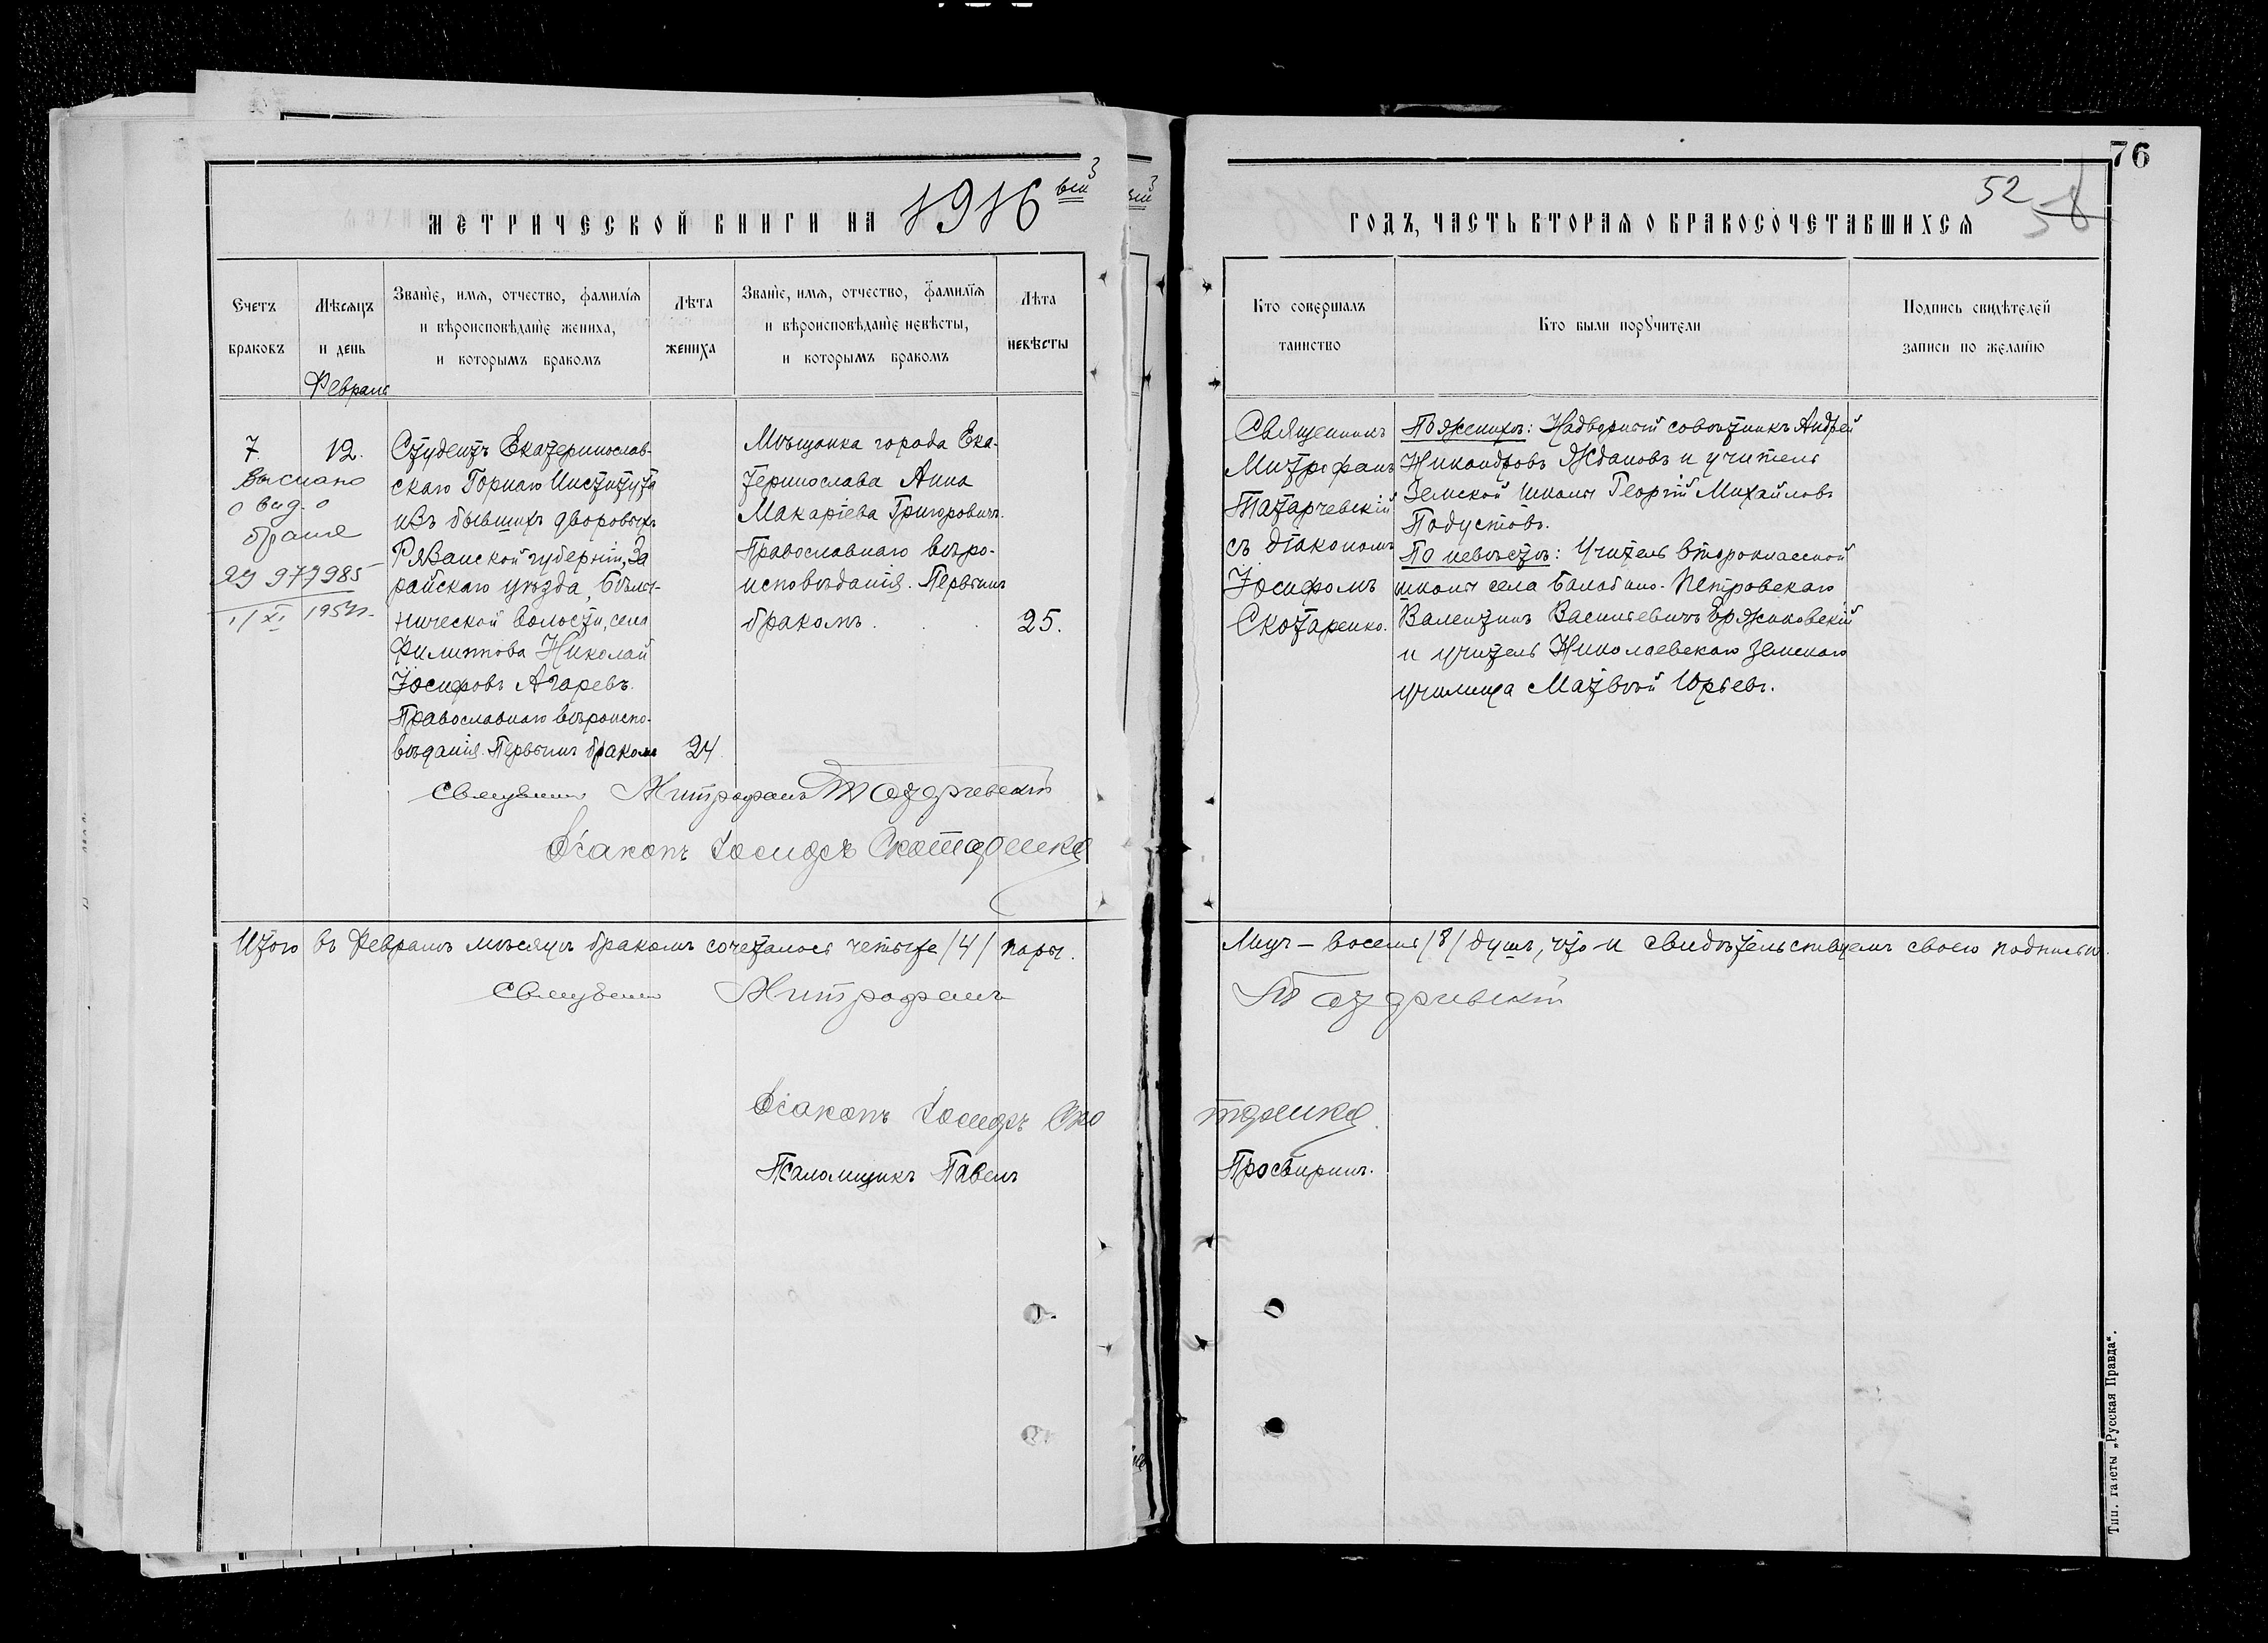 76
52
58
МЕТРИЧЕСКОЙ КНИГИ НА 1916 ый
ГОДЪ, ЧАСТЬ ВТОРАЯ О БРАКОСОЧЕТАВШИХСЯ
Счетъ браковъ
Мѣсяцъ и день
Званїе, имя, отчество, фамилїя
и вѣроисповѣданїе жениха,
и которымъ бракомъ
Лѣта жениха
Званїе, имя, отчество, фамилїя
и вѣроисповѣданїе невѣсты,
и которымъ бракомъ
Лѣта невѣсты
Кто совершалъ таинство
Кто были порꙋчители
Подпись свидѣтелей
записи по желанїю
Февраль
7.
12.
Студентъ Екатеринослав-
скаго Горнаго Института
изъ бывшихъ дворовыхъ
Рязанской губерніи, За
райскаго уѣзда,
нической волости, села
Филиппова Николай
Іосифовъ Агаревъ.
Православнаго вѣроиспо-
вѣданія. Первымъ бракомъ
24
Мѣщанка города Ека-
теринослава Анна
Макаріева Григоровичъ.
Православнаго вѣро-
исповѣданія. Первымъ
бракомъ.
25.
выслано
о
браке
977985
1/XI 195
Священникъ
Митрофанъ
Татарчевскій
съ діакономъ
Іосифомъ
Скотаренко.
По женихѣ: Надворный совѣтникъ Андрей
Никандровъ Ждановъ и учитель
Земской школы Георгій Михайловъ
Подустовъ.
По невѣстѣ: Учитель второклассной
школы села Балабино-Петровскаго
Валентинъ Васильевичъ Бряжковскій
и учитель Николаевскаго земскаго
училища Матвѣй Юрьевъ.
Священникъ Митрофанъ Татарчевскій
Діаконъ Іосифъ Скотаренко
Итого въ Февралѣ мѣсяцѣ бракомъ сочеталось четыре /4/ пары.
Лицъ – восемь /8/ душъ, что и свидѣтельствуемъ своею подписью.
Священникъ Митрофанъ Татарчевскій
Діаконъ Іосифъ Скотаренко
Псаломщикъ Павелъ Просвиринъ.
Тип. газеты „Русская Правда“.